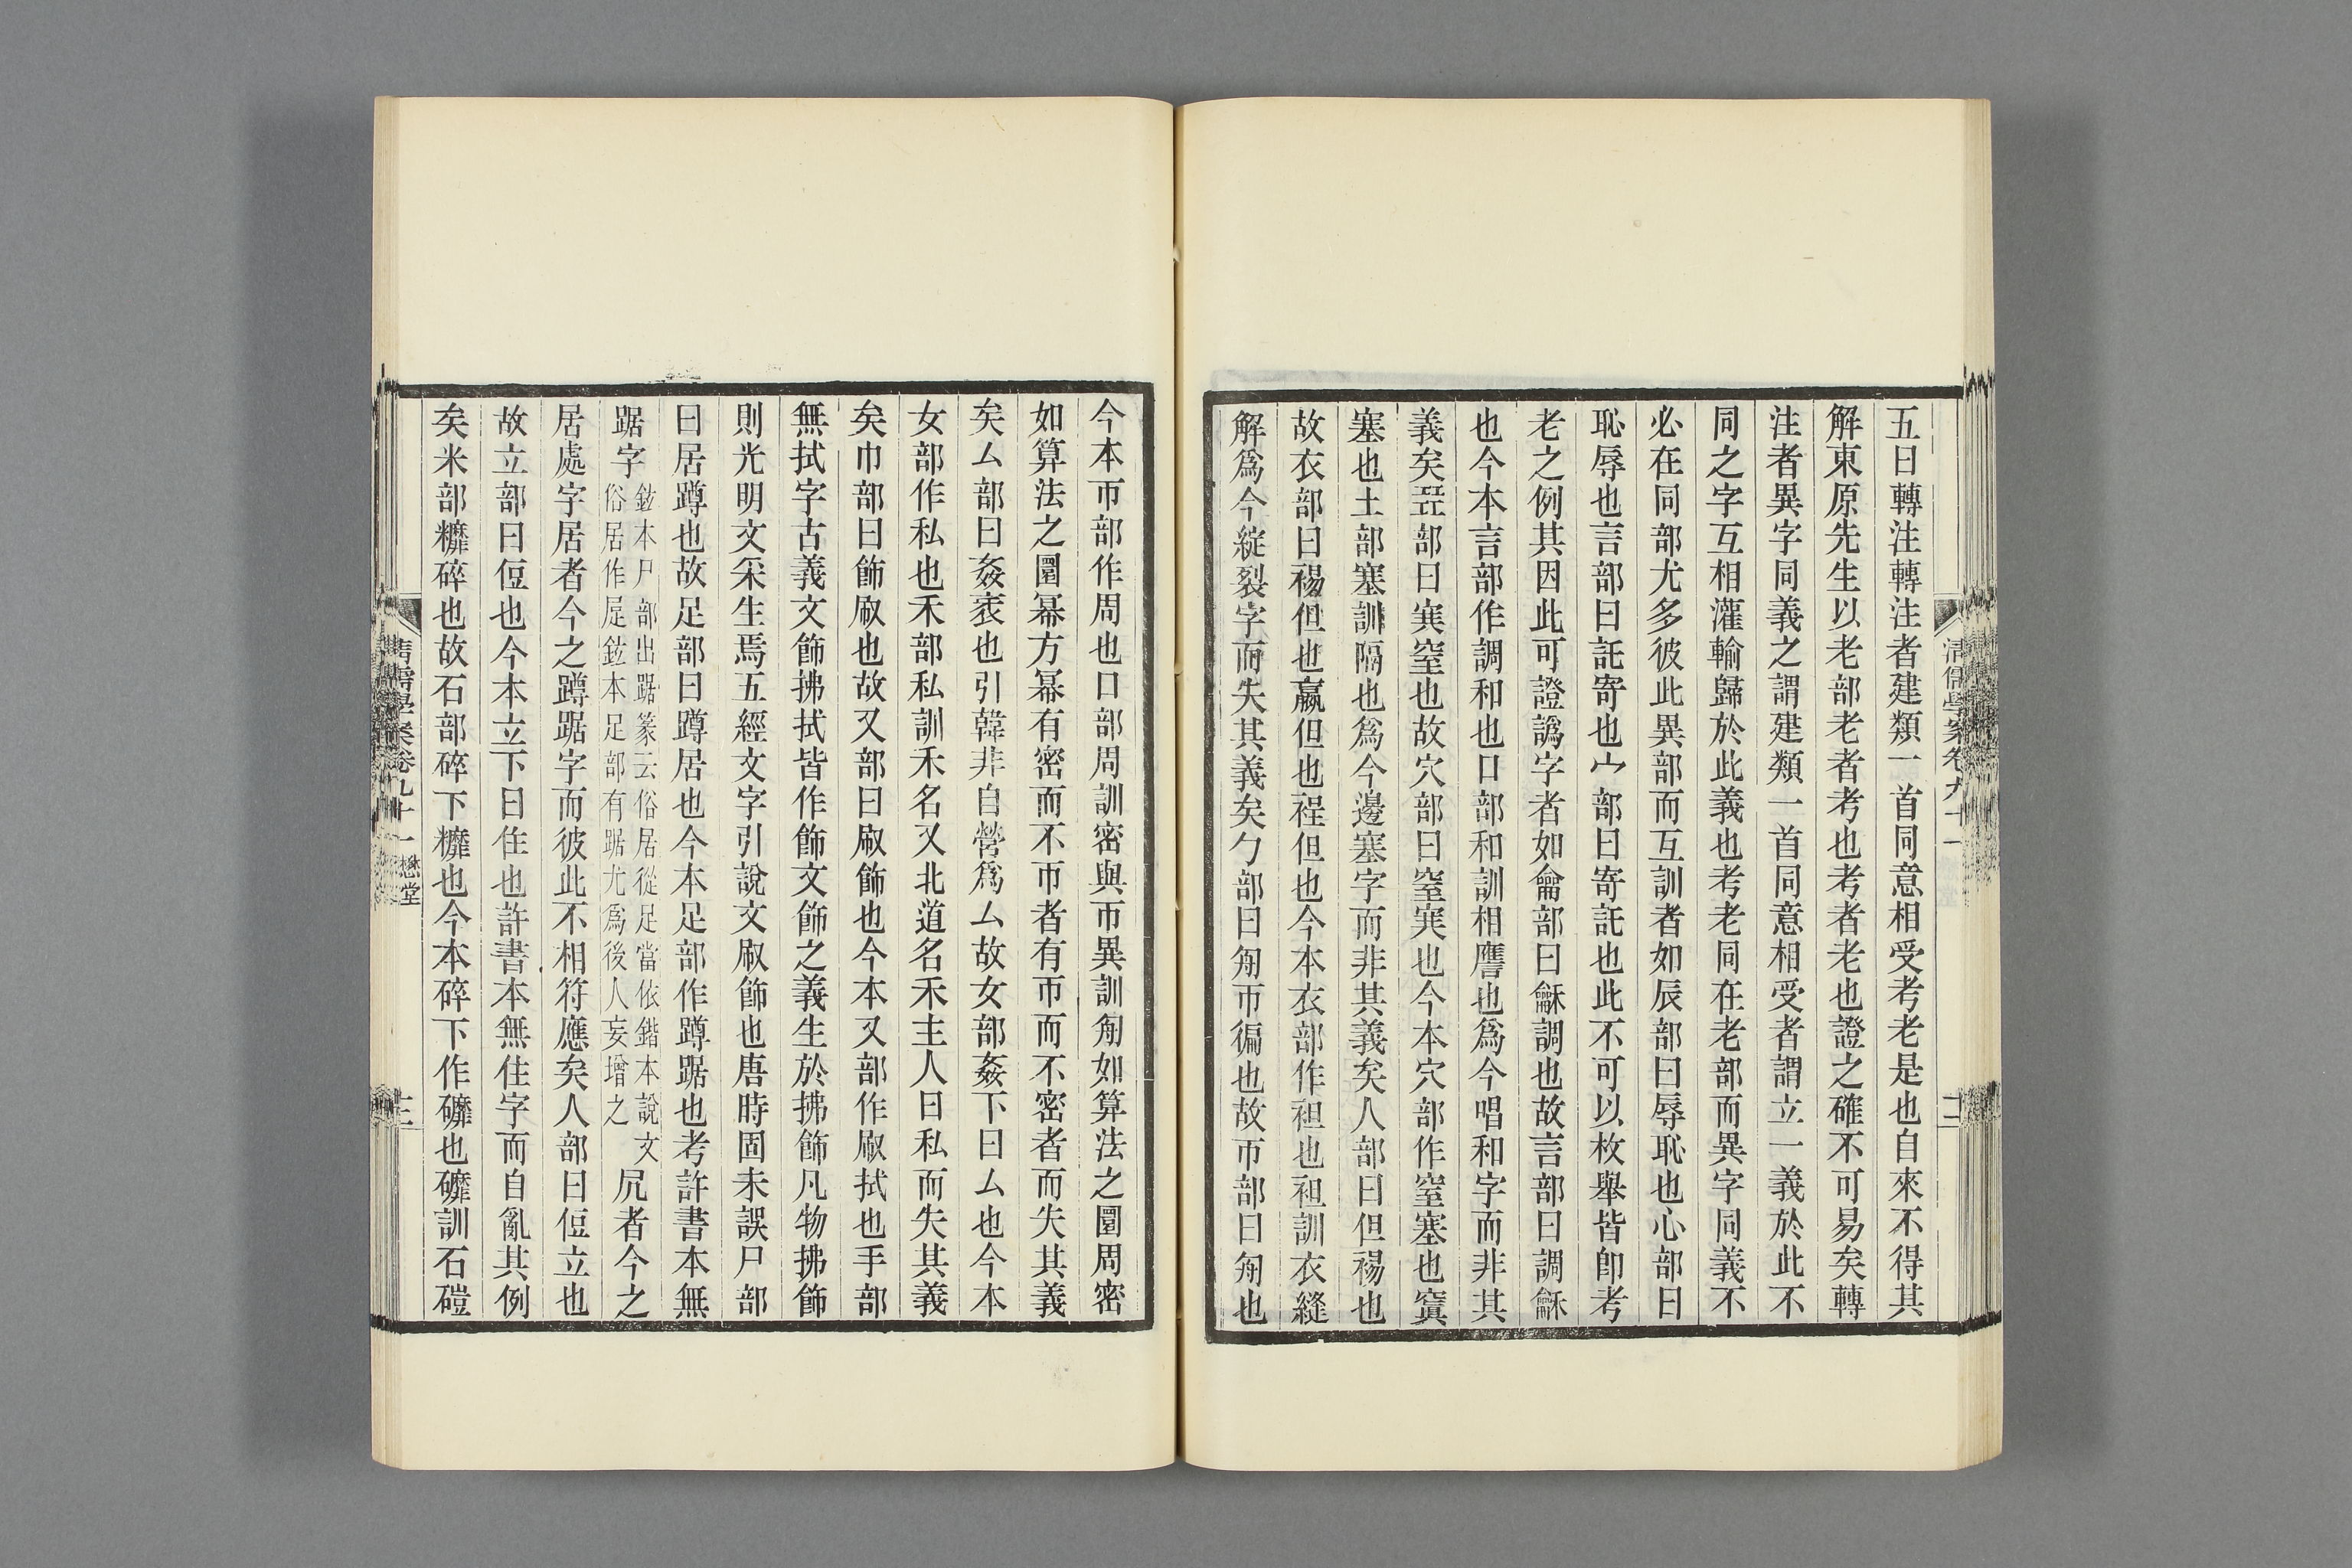 五曰轉注轉注者建類一首同意相受考老是也自來不得其
解東原先生以老部老者考也考者老也證之確不可易矣轉
注者異字同義之謂建類一首同意相受者謂立一義於此不
同之字互相灌輸歸於此義也考老同在老部而異字同義不
必在同部尤多彼此異部而互訓者如辰部曰辱恥也心部曰
恥辱也言部曰託寄也宀部曰寄託也此不可以枚舉皆卽考
老之例其因此可證譌字者如龠部曰龢調也故言部曰調龢
也今本言部作調和也口部和訓相譍也爲今唱和字而非其
義矣㠭部曰㝱窒也故穴部曰窒㝱也今本穴部作窒塞也窴
塞也土部塞訓隔也爲今邊塞字而非其義矣人部曰但裼也
故衣部曰裼但也臝但也裎但也今本衣部作袒也袒訓衣縫
解爲今綻裂字而失其義矣勹部曰匊帀徧也故帀部曰匊也
清儒學案卷九十一
二
今本帀部作周也口部周訓密與帀異訓匊如算法之圜周密
如算法之圜冪方冪有密而不帀者有帀而不密者而失其義
矣厶部曰姦衺也引韓非自營爲厶故女部姦下曰厶也今本
女部作私也禾部私訓禾名又北道名禾主人曰私而失其義
矣巾部曰飾㕞也故又部曰㕞飾也今本又部作㕞拭也手部
無拭字古義文飾拂拭皆作飾文飾之義生於拂飾凡物拂飾
則光明文采生焉五經文字引說文㕞飾也唐時固未誤尸部
曰居蹲也故足部曰蹲居也今本足部作蹲踞也考許書本無
踞字鉉本尸部出踞篆云俗居從足當依鍇本說文俗居作屍鉉本足部有踞尤爲後人妄增之凥者今之
居處字居者今之蹲踞字而彼此不相符應矣人部曰侸立也
故立部曰侸也今本立下曰住也許書本無住字而自亂其例
矣米部䊳碎也故石部碎下䊳也今本碎下作䃺也䃺訓石磑
清儒學案卷九十一　懋堂
三